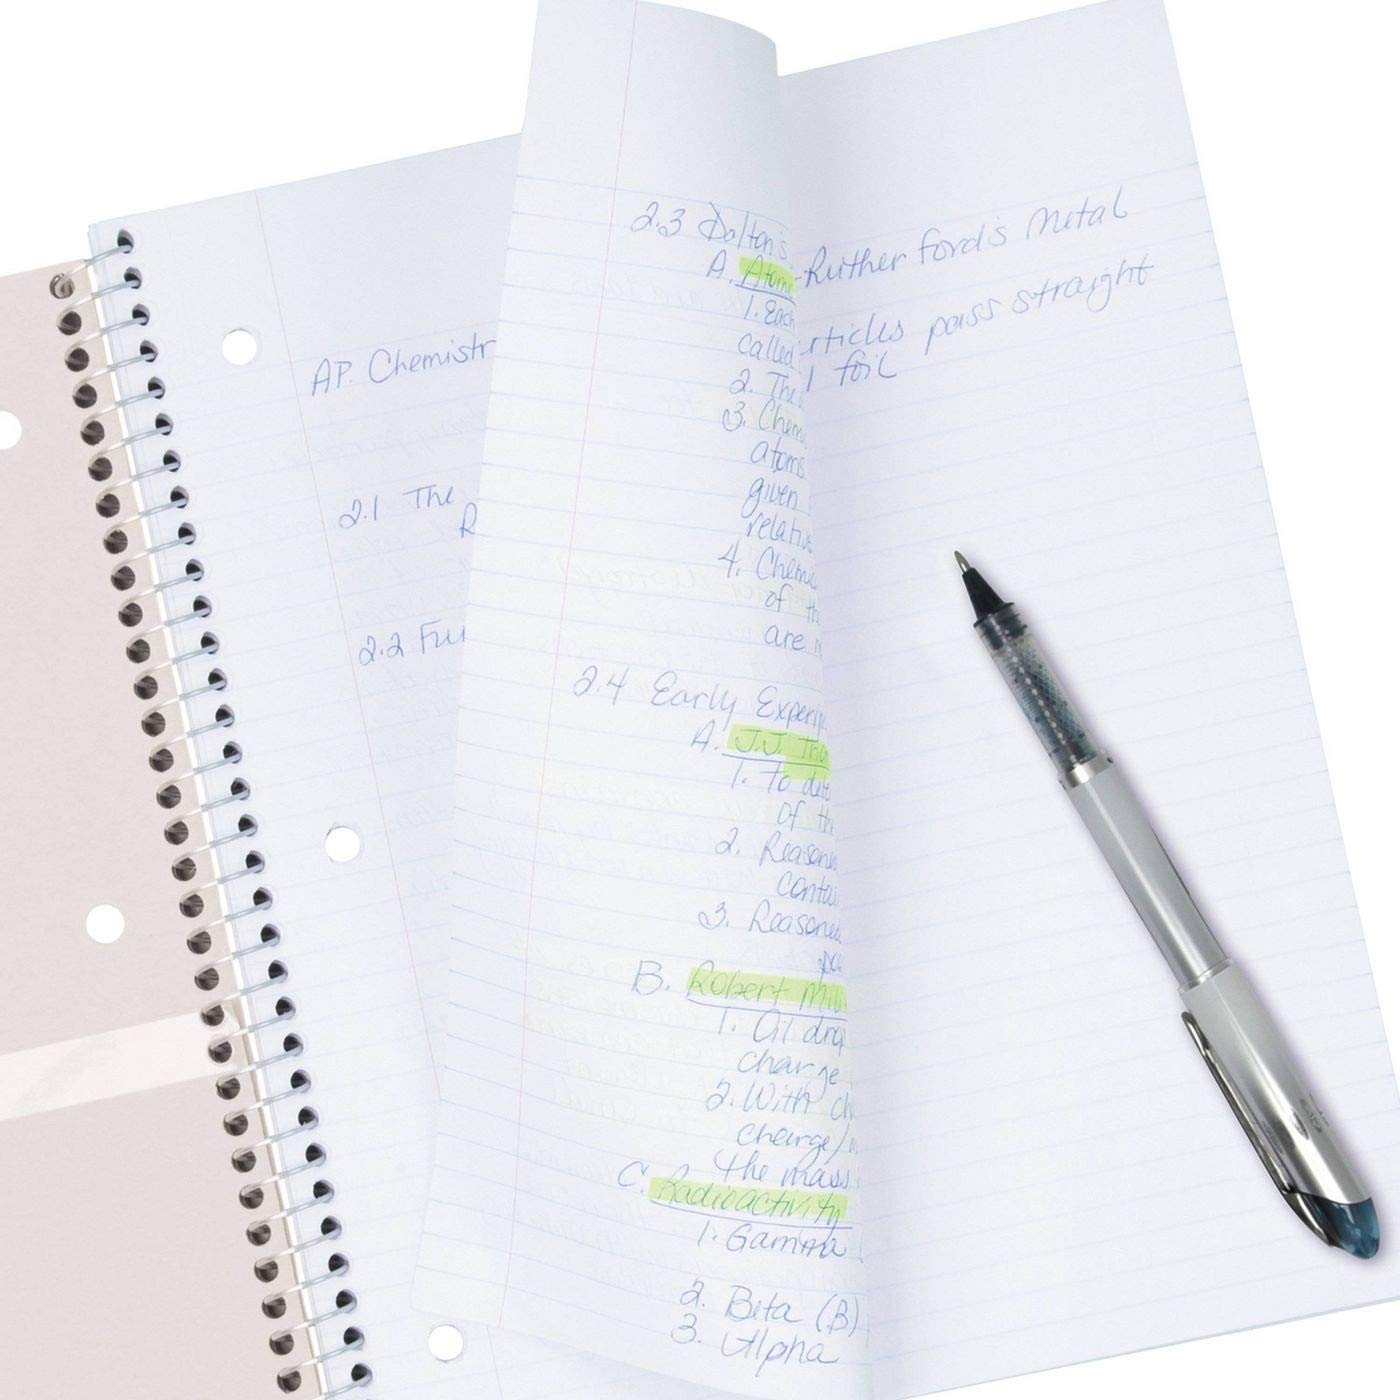 AP. Chemistr
2.1 The
R
2.2 Fu
2.3 Dalton's
A. Atom
1. Each
called
2. The
3. Chem
atoms
given
relativ
4. Chemic
of th
are
2.4 Early Experim
A. J.J. Tho
1. To det
of th
2. Reasone
contai
3. Reasoned
pa
B. Robert Mill
1. Oil drop
charge
2. With ch
charge/m
the mass
C. Radioactivity
1. Gamma
2. Beta (B)
3. Alpha
-Rutherford's Metal
rticles pass straight
l foil